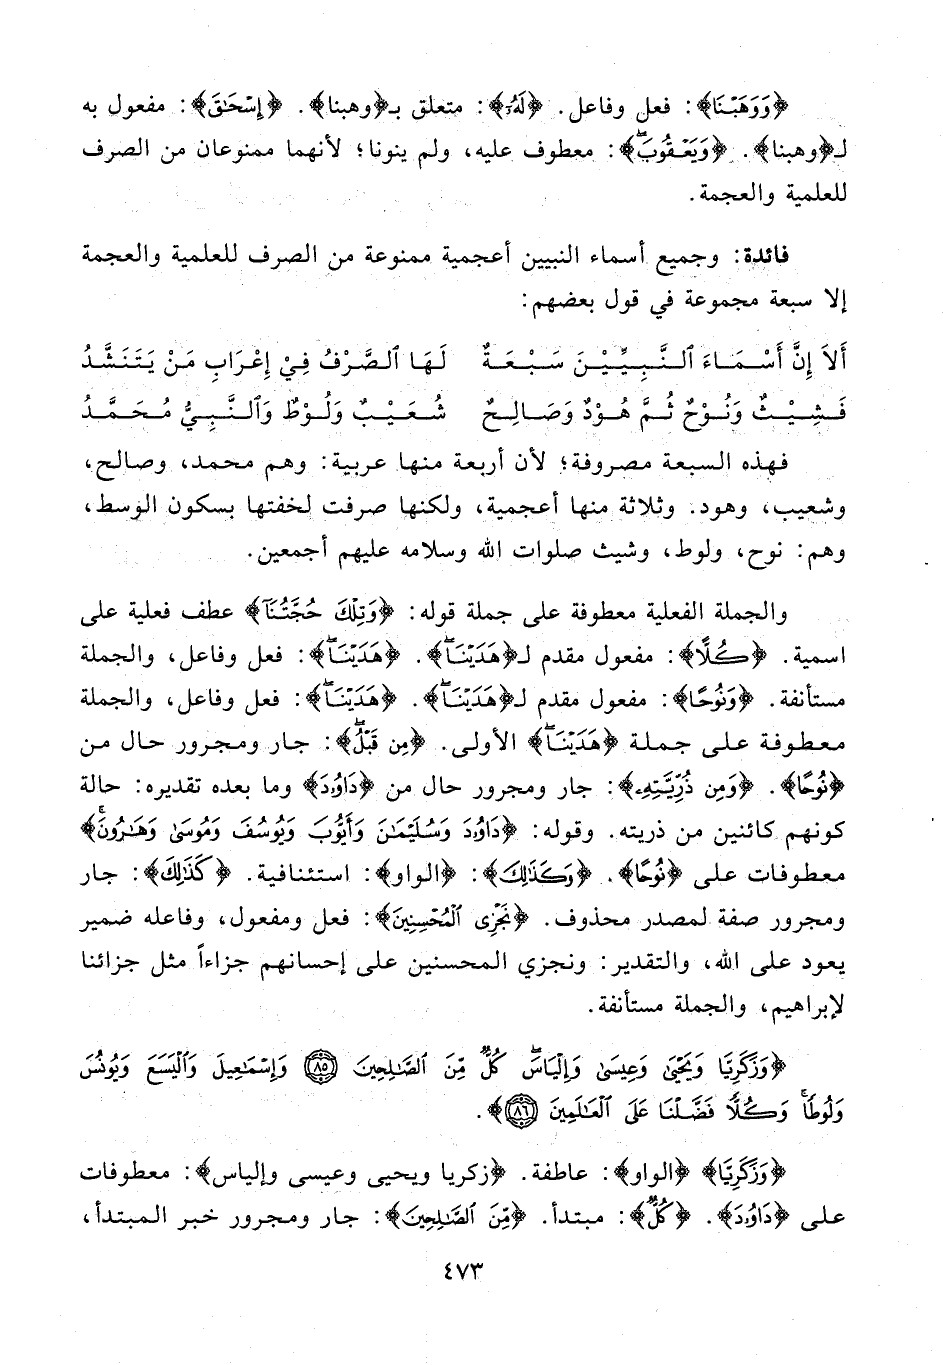 ﴿وَوَهَبْنَا﴾: فعل وفاعل. ﴿لَهُۥ﴾: متعلق بـ﴿وهبنا﴾. ﴿إِسْحَٰقَ﴾: مفعول به
لـ﴿وهبنا﴾. ﴿وَيَعْقُوبَۚ﴾: معطوف عليه، ولم ينونا؛ لأنهما ممنوعان من الصرف
للعلمية والعجمة.
فائدة: وجميع أسماء النبيين أعجمية ممنوعة من الصرف للعلمية والعجمة
إلا سبعة مجموعة في قول بعضهم:
أَلاَ إِنَّ أَسْمَاءَ النَّبِيِّيْنَ سَبْعَةٌ لَهَا الصَّرْفُ فِيْ إِعْرَابِ مَنْ يَتَنَشَّدُ
فَشِيْثٌ وَنُوْحٌ ثُمَّ هُوْدٌ وَصَالِحٌ شُعَيْبٌ وَلُوْطٌ وَالنَّبِيُّ مُحَمَّدُ
فهذه السبعة مصروفة؛ لأن أربعة منها عربية: وهم محمد، وصالح،
وشعيب، وهود. وثلاثة منها أعجمية، ولكنها صرفت لخفتها بسكون الوسط،
وهم: نوح، ولوط، وشيث صلوات الله وسلامه عليهم أجمعين.
والجملة الفعلية معطوفة على جملة قوله: ﴿وَتِلْكَ حُجَّتُنَآ﴾ عطف فعلية على
اسمية. ﴿كُلًّا﴾: مفعول مقدم لـ﴿هَدَيْنَاۚ﴾. ﴿هَدَيْنَاۚ﴾: فعل وفاعل، والجملة
مستأنفة. ﴿وَنُوحًا﴾: مفعول مقدم لـ﴿هَدَيْنَاۚ﴾. ﴿هَدَيْنَاۚ﴾: فعل وفاعل، والجملة
معطوفة على جملة ﴿هَدَيْنَاۚ﴾ الأولى. ﴿مِن قَبْلُۖ﴾: جار ومجرور حال من
﴿نُوحًا﴾. ﴿وَمِن ذُرِّيَّتِهِۦ﴾: جار ومجرور حال من ﴿دَاوُۥدَ﴾ وما بعده تقديره: حالة
كونهم كائنين من ذريته. وقوله: ﴿دَاوُۥدَ وَسُلَيْمَٰنَ وَأَيُّوبَ وَيُوسُفَ وَمُوسَىٰ وَهَٰرُونَۚ﴾
معطوفات على ﴿نُوحًا﴾. ﴿وَكَذَٰلِكَ﴾: ﴿الواو﴾: استئنافية. ﴿كَذَٰلِكَ﴾: جار
ومجرور صفة لمصدر محذوف. ﴿نَجْزِى ٱلْمُحْسِنِينَ﴾: فعل ومفعول، وفاعله ضمير
يعود على الله، والتقدير: ونجزي المحسنين على إحسانهم جزاءاً مثل جزائنا
لإبراهيم، والجملة مستأنفة.
﴿وَزَكَرِيَّا وَيَحْيَىٰ وَعِيسَىٰ وَإِلْيَاسَۖ كُلٌّ مِّنَ ٱلصَّٰلِحِينَ ٨٥ وَإِسْمَٰعِيلَ وَٱلْيَسَعَ وَيُونُسَ
وَلُوطًاۚ وَكُلًّا فَضَّلْنَا عَلَى ٱلْعَٰلَمِينَ ٨٦﴾.
﴿وَزَكَرِيَّا﴾ ﴿الواو﴾: عاطفة. ﴿زكريا ويحيى وعيسى وإلياس﴾: معطوفات
على ﴿دَاوُۥدَ﴾. ﴿كُلٌّ﴾: مبتدأ. ﴿مِّنَ ٱلصَّٰلِحِينَ﴾: جار ومجرور خبر المبتدأ،
٤٧٣